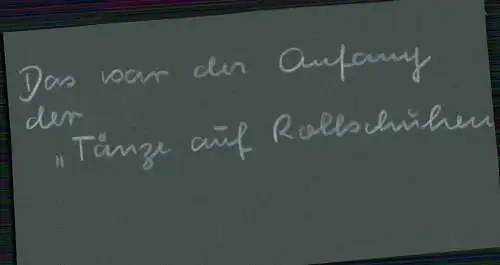 Das war der Anfang
der
„Tänze auf Rollschuhen